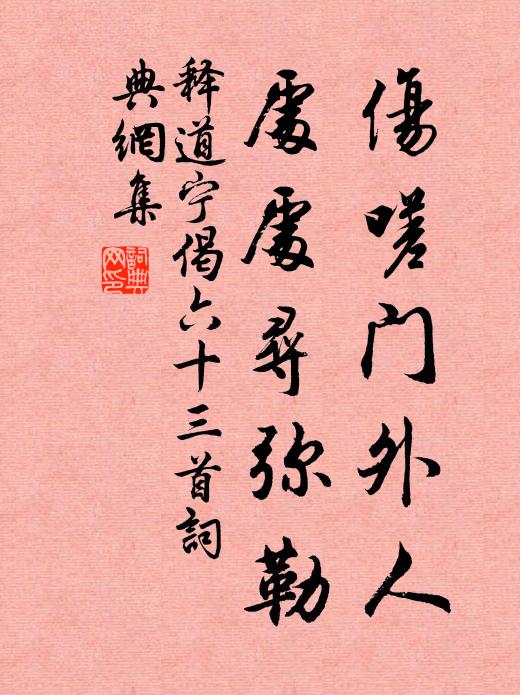 傷嗟門外人
處處尋弥勒
释道宁偈六十三首詞
典網集
詞典
网印